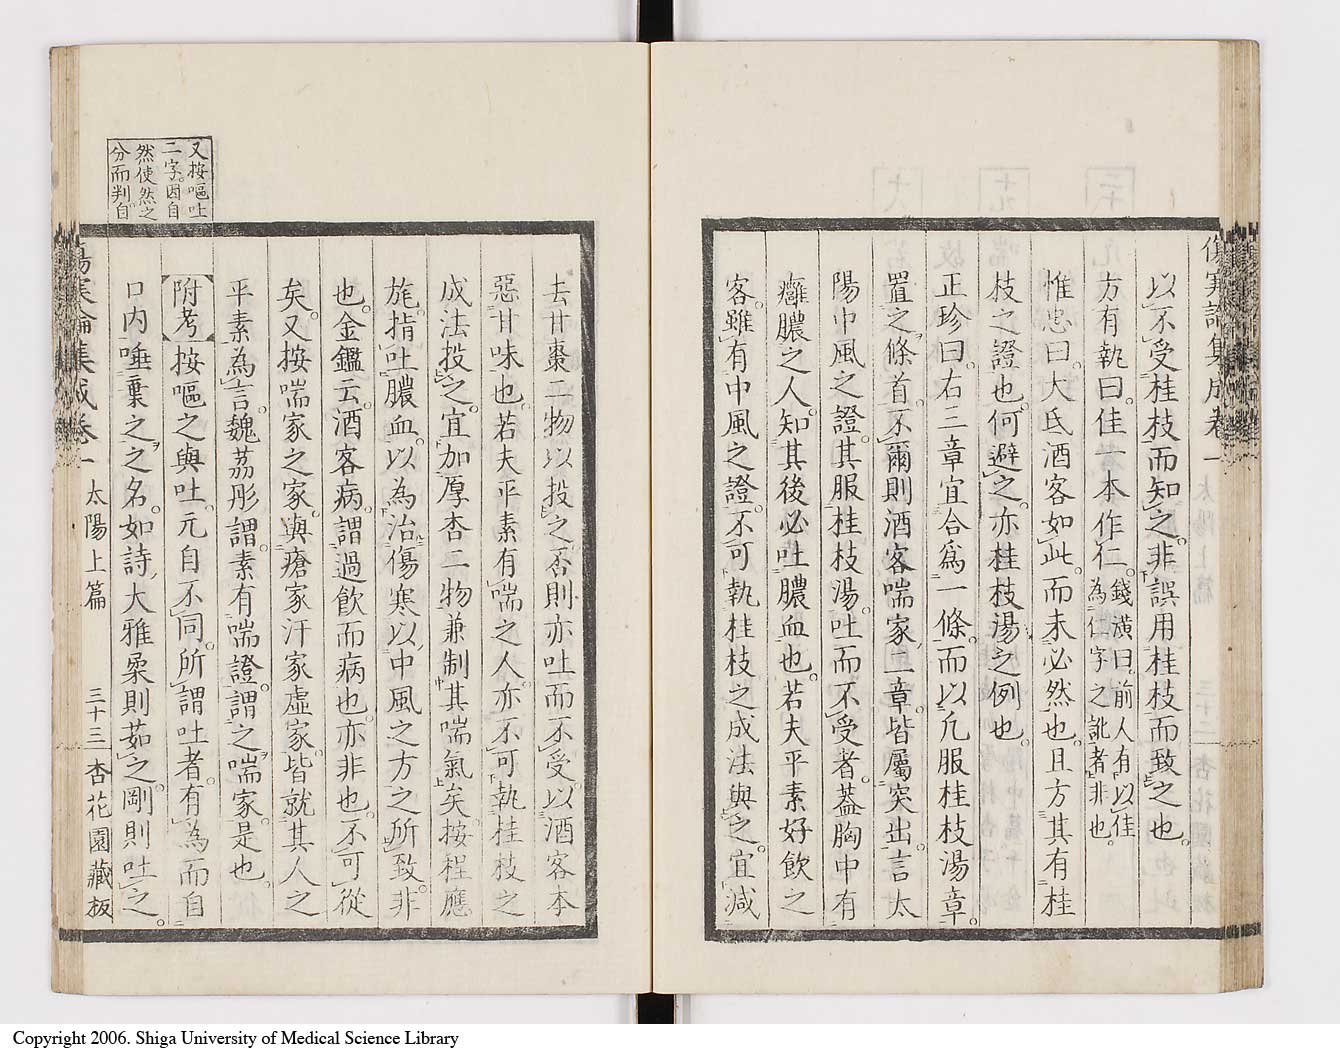 傷寒論集成卷一
以不受桂枝而知之非誤用桂枝而致之也
方有執曰佳一本作仁錢潢曰前人有以佳為仁字之訛者非也
惟忠曰大氐酒客如此而未必然也且方其有桂
枝之證也何避之亦桂枝湯之例也
正珍曰右三章宜合爲一條而以凡服桂枝湯章
置之條首不爾則酒客喘家二章皆屬突出言太
陽中風之證其服桂枝湯吐而不受者蓋胸中有
癰膿之人知其後必吐膿血也若夫平素好飲之
客雖有中風之證不可執桂枝之成法與之宜減
去甘棗二物以投之否則亦吐而不受以酒客本
惡甘味也若夫平素有喘之人亦不可執桂枝之
成法投之宜加厚杏二物兼制其喘氣矣按程應
旄指吐膿血以為治傷寒以中風之方之所致非
也金鑑云酒客病謂過飲而病也亦非也不可從
矣又按喘家之家與瘡家汗家虛家皆就其人之
平素為言魏荔彤謂素有喘證謂之喘家是也
附考 按嘔之與吐元自不同所謂吐者有為而自
口內唾棄之之名如詩大雅柔則茹之剛則吐之
又按嘔吐
二字因自
然使然之
分而判自
傷寒論集成卷一 太陽上篇 三十三 杏花園藏板
Copyright 2006. Shiga University of Medical Science Library